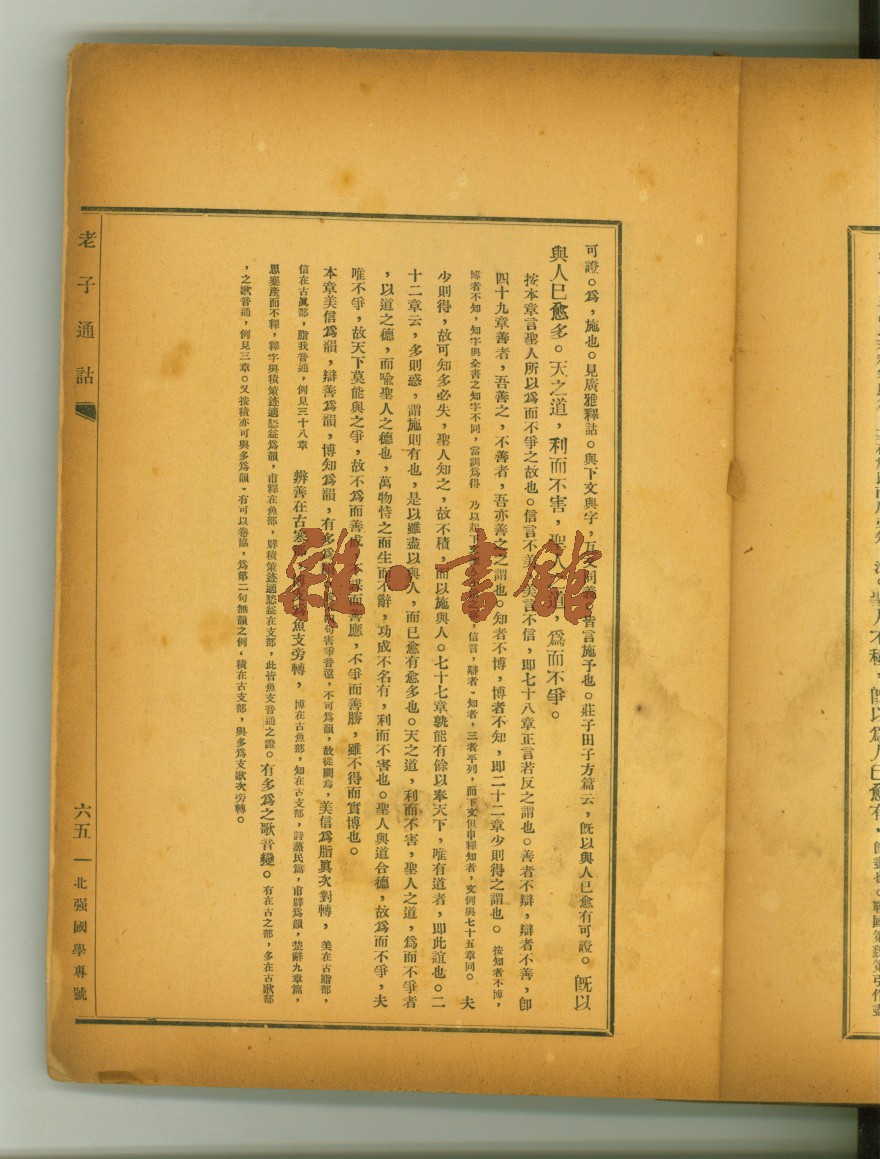 可證。爲，施也。見廣雅釋詁。與下文與字，互文同義，皆言施予也。莊子田子方篇云，旣以與人已愈有可證。旣以
與人已愈多。天之道，利而不害，聖人之道，爲而不爭。
按本章言聖人所以爲而不爭之故也。信言不美，美言不信，卽七十八章正言若反之謂也。善者不辯，辯者不善，卽
四十九章善者，吾善之，不善者，吾亦善之之謂也。知者不博，博者不知，卽二十二章少則得之謂也。按知者不博，
博者不知，知字與全書之知字不同，當訓爲得 乃以起下文 信言，辯者、知者，三者平列，而下文但申釋知者，文例與七十五章同。夫
少則得，故可知多必失，聖人知之，故不積，而以施與人。七十七章孰能有餘以奉天下，唯有道者，卽此誼也。二
十二章云，多則惑，謂施則有也，是以雖盡以與人，而已愈有愈多也。天之道，利而不害，聖人之道，爲而不爭者
，以道之德，而喻聖人之德也，萬物恃之而生而不辭，功成不名有，利而不害也。聖人與道合德，故爲而不爭，夫
唯不爭，故天下莫能與之爭，故不爲而善成，不謀而善應，不爭而善勝，雖不得而實博也。
本章美信爲韻，辯善爲韻，博知爲韻，有多爲韻 句害爭音遠，不可爲韻，故從闕焉，美信爲脂眞次對轉，美在古脂部，
信在古眞部，脂眞音通，例見三十八章 辨善在古寒部，博支爲魚支旁轉，博在古魚部，知在古支部，詩蕩民篇，甫辟爲韻，楚辭九章篇，
思蹇產而不釋，釋字與積策迹適愁益爲韻，甫釋在魚部，辟積策迹適愁益在支部，此皆魚支音通之證。有多爲之歌音變。有在古之部，多在古歌部
，之歌音通，例見三章。又按積亦可與多爲韻、有可以卷區，爲第二句無韻之例，積在古支部，與多爲支歌次旁轉。
老子通詁
六五 — 北强國學專號
雜·書鋪